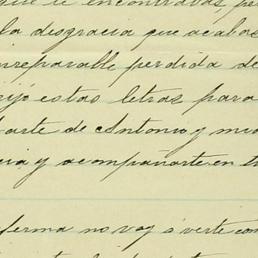 que te encontrabas pe
la desgracia que acabas
irreparable perdida de
rijo estas letras para
parte de Antonio y mia
cia y acompañarte en tu
ferma no voy á verte con